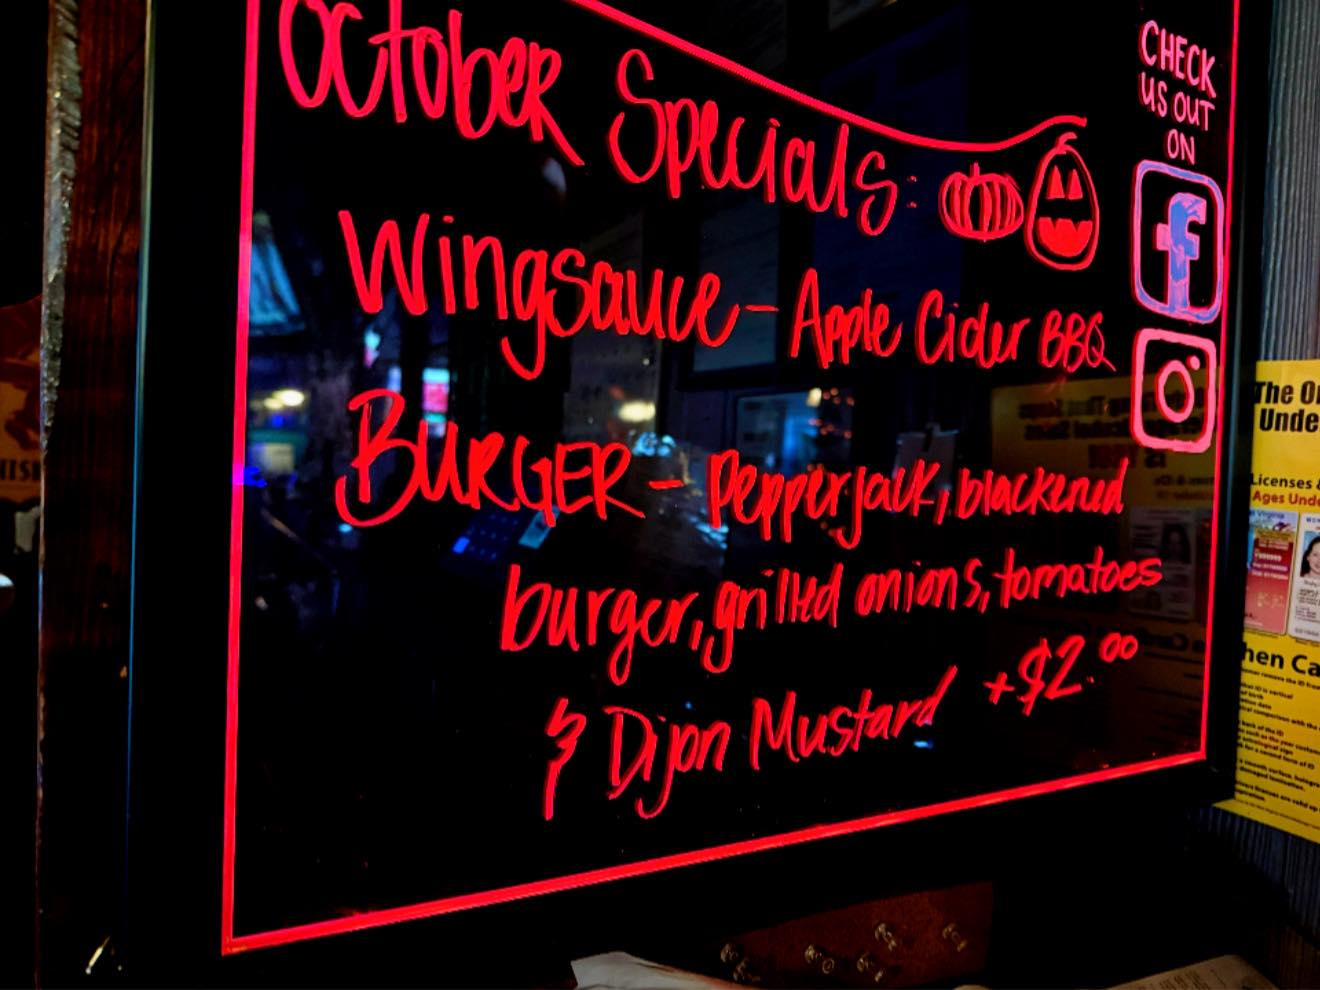 October Specials:
Wingsauce - Apple Cider BBQ
BURGER - Pepperjack, blackened
burger, grilled onions, tomatoes
& Dijon Mustard +$2.00
CHECK
US OUT
ON
f
The
Unde
Licenses &
Ages Unde
hen Ca